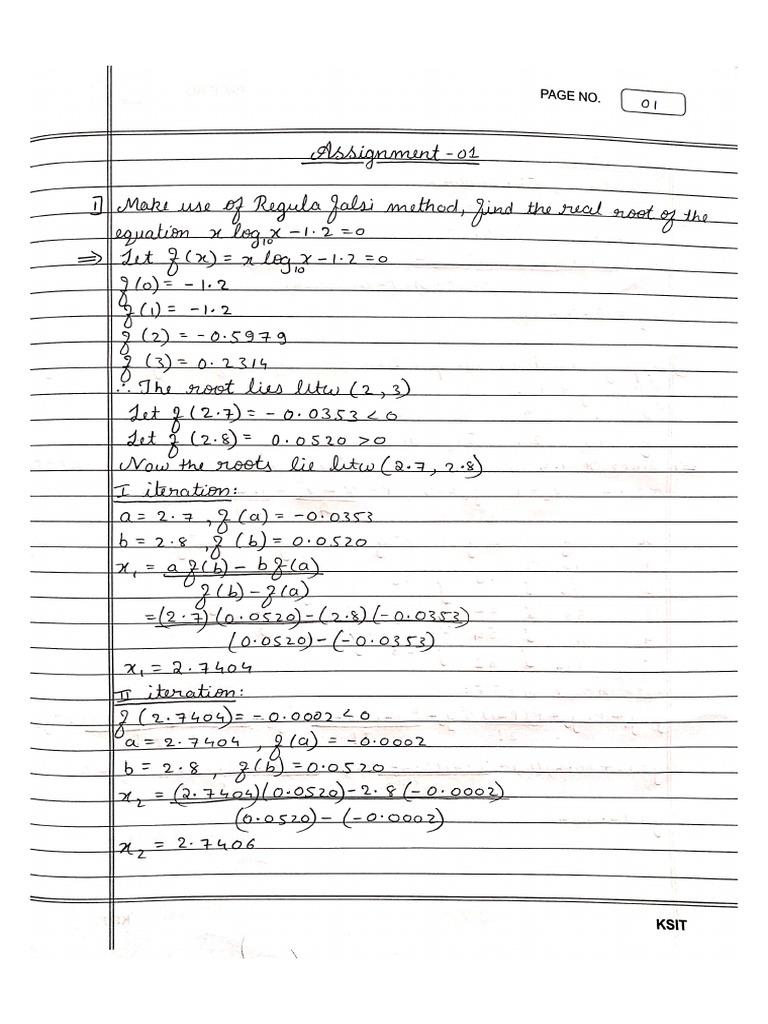 PAGE NO. 01
Assignment-01
1] Make use of Regula falsi method, find the real root of the
equation x log₁₀x-1.2=0
⇒ Let f(x) = x log₁₀x-1.2=0
f(0)= -1.2
f(1)= -1.2
f(2) = -0.5979
f(3)= 0.2314
∴ The root lies btw (2,3)
Let f(2.7)= -0.0353<0
Let f(2.8)= 0.0520 >0
Now the roots lie btw (2.7, 2.8)
I iteration:
a= 2.7 , f(a) = -0.0353
b= 2.8 , f(b) = 0.0520
x₁ = a f(b) - b f(a)
f(b)-f(a)
=(2.7)(0.0520)-(2.8)(-0.0353)
(0.0520)-(-0.0353)
x₁ = 2.7404
II iteration:
f(2.7404)= -0.0002<0
a= 2.7404 , f(a) = -0.0002
b= 2.8 , f(b) = 0.0520
x₂ = (2.7404)(0.0520)-2.8(-0.0002)
(0.0520)-(-0.0002)
x₂ = 2.7406
KSIT